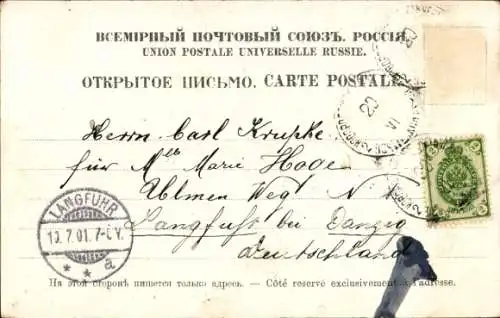 ВСЕМІРНЫЙ ПОЧТОВЫЙ СОЮЗЪ. РОССІЯ.
UNION POSTALE UNIVERSELLE RUSSIE.
ОТКРЫТОЕ ПИСЬМО. CARTE POSTALE
20
VI
Herrn Carl Krupke
für Mlle Marie Hooge
Ulmen Weg N
Langfuhr bei Danzig
Deutschland
LANGFUHR
10.7.01. 7-8V.
* * a
На этой сторонѣ пишется только адресъ. — Côté réservé exclusivement à l'adresse.